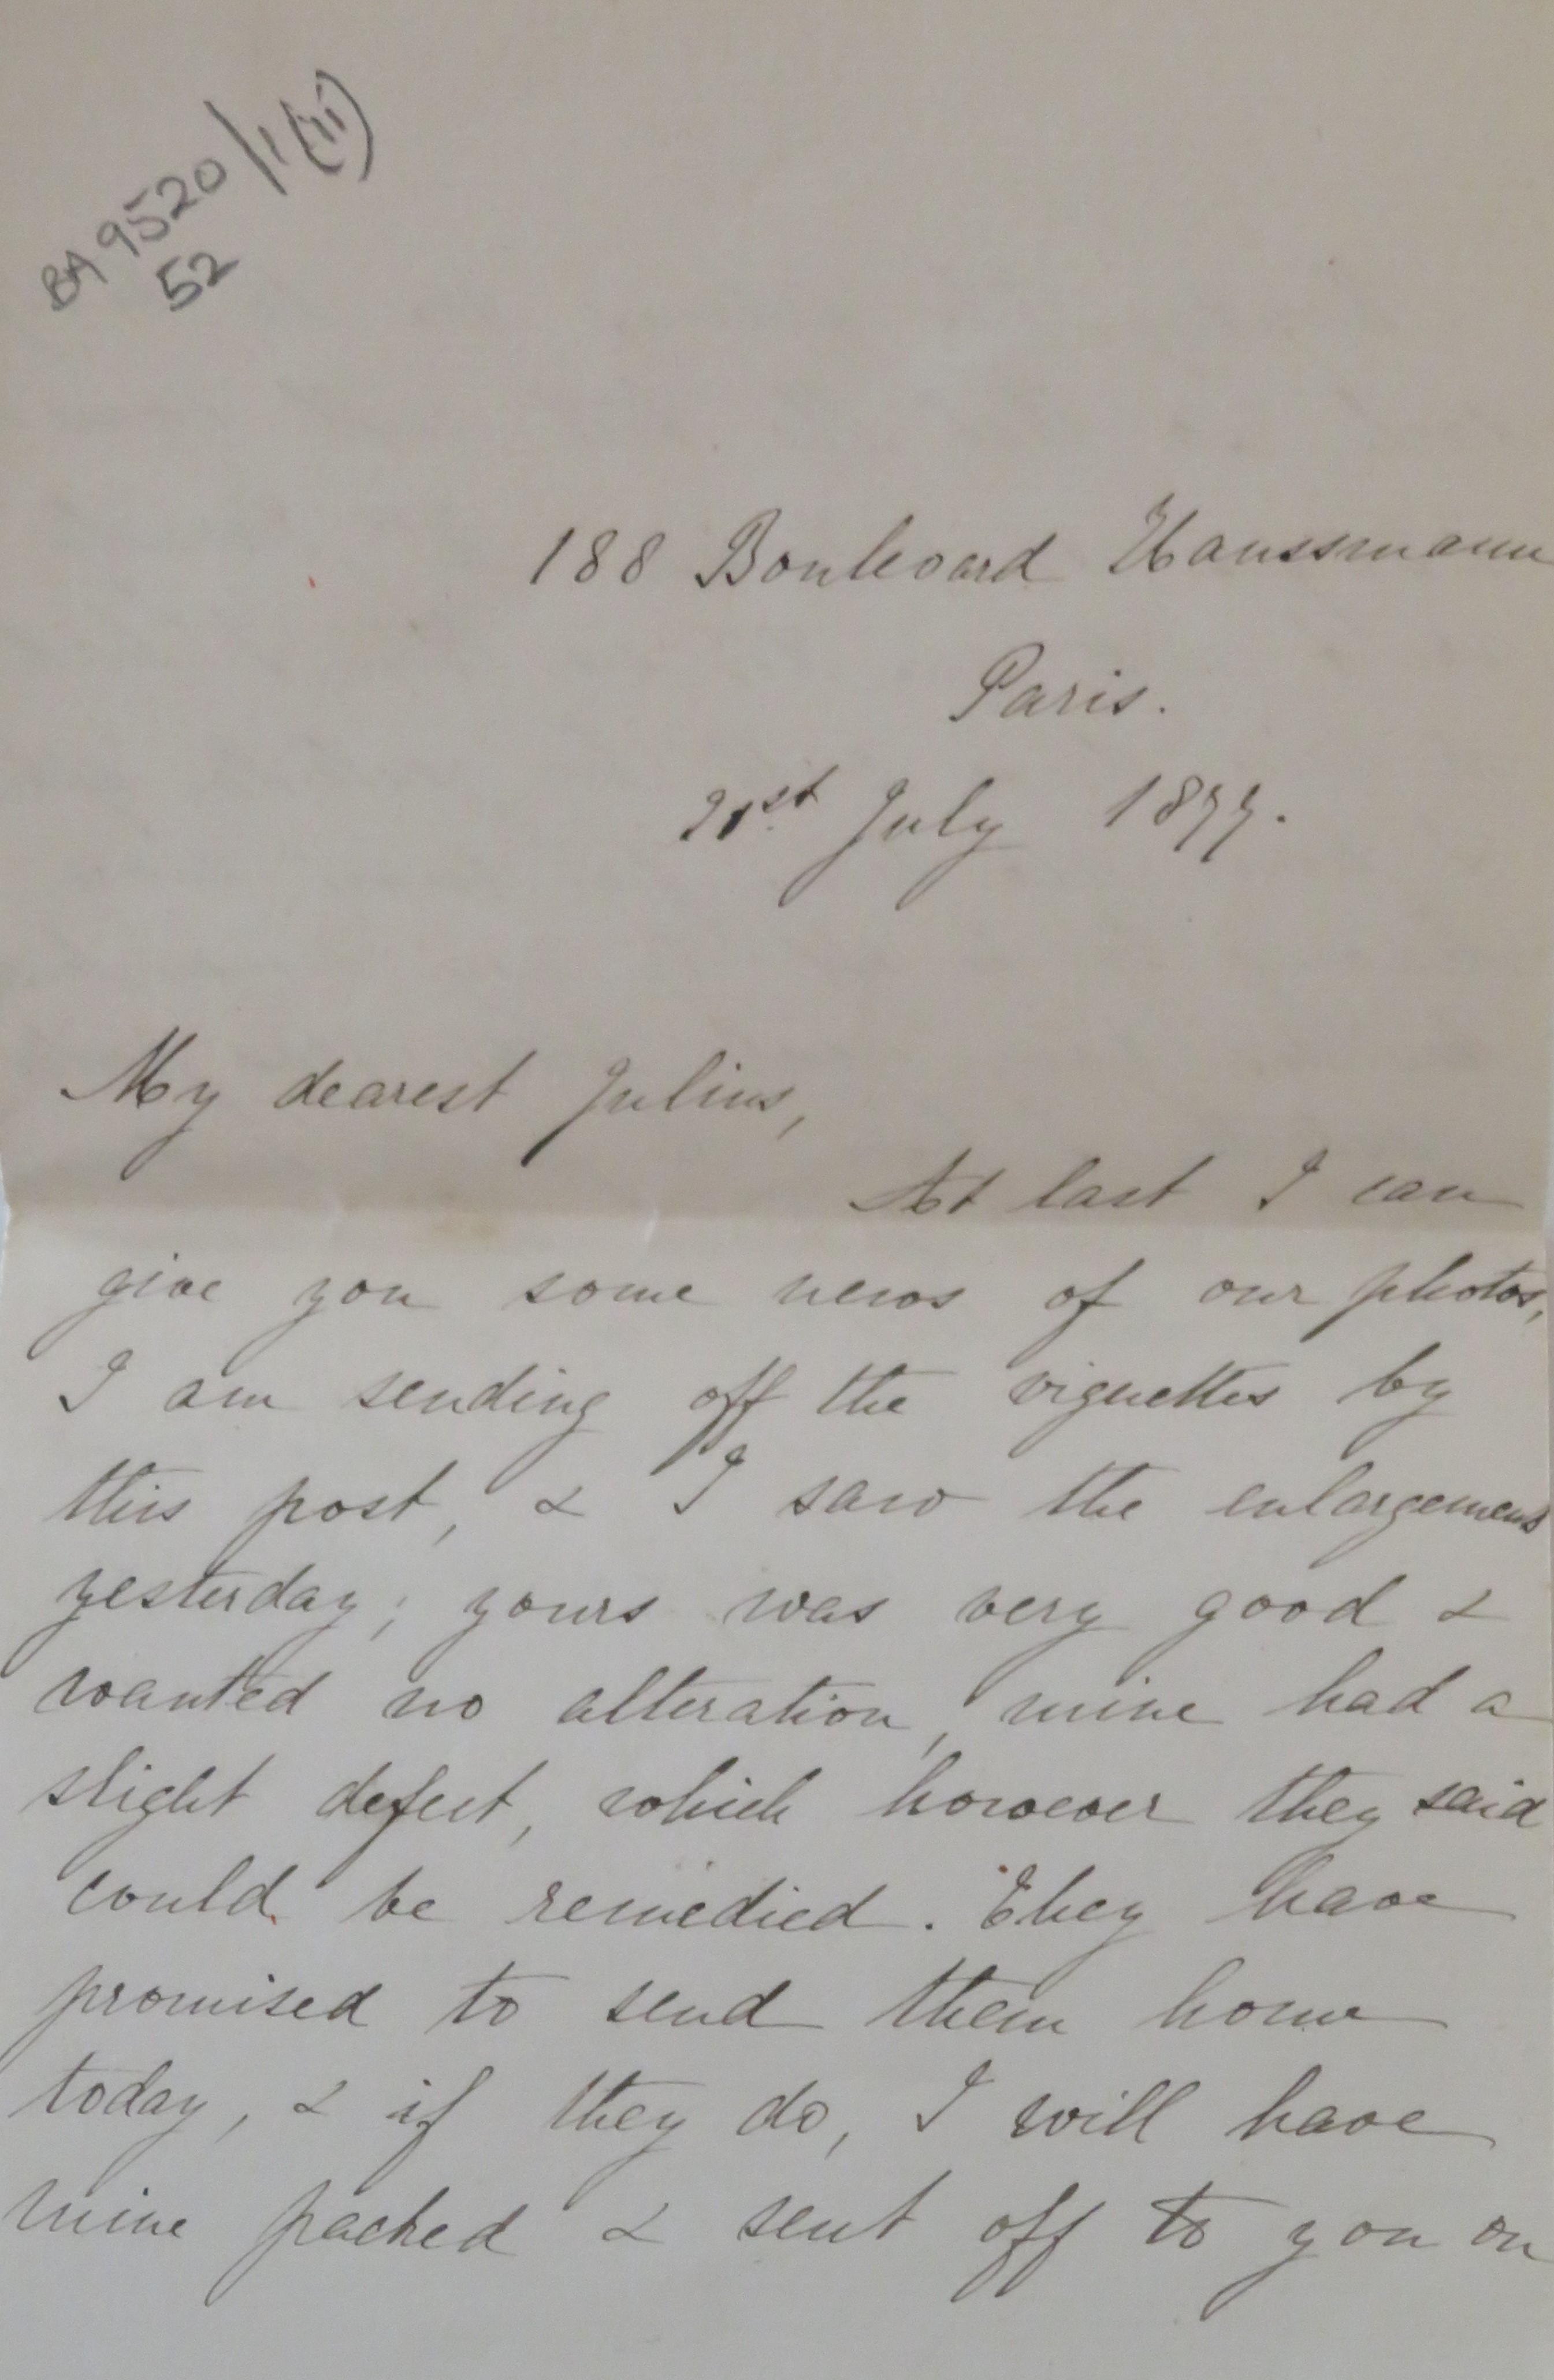 BA 9520/1(ii)
52
188 Boulevard Haussmann
Paris.
21st July 1877.
My dearest Julius,
At last I can
give you some news of our photos,
I am sending off the vignettes by
this post, & I saw the enlargements
yesterday; yours was very good &
wanted no alteration, mine had a
slight defect, which however they said
could be remedied. They have
promised to send them home
today, & if they do, I will have
mine packed & sent off to you on